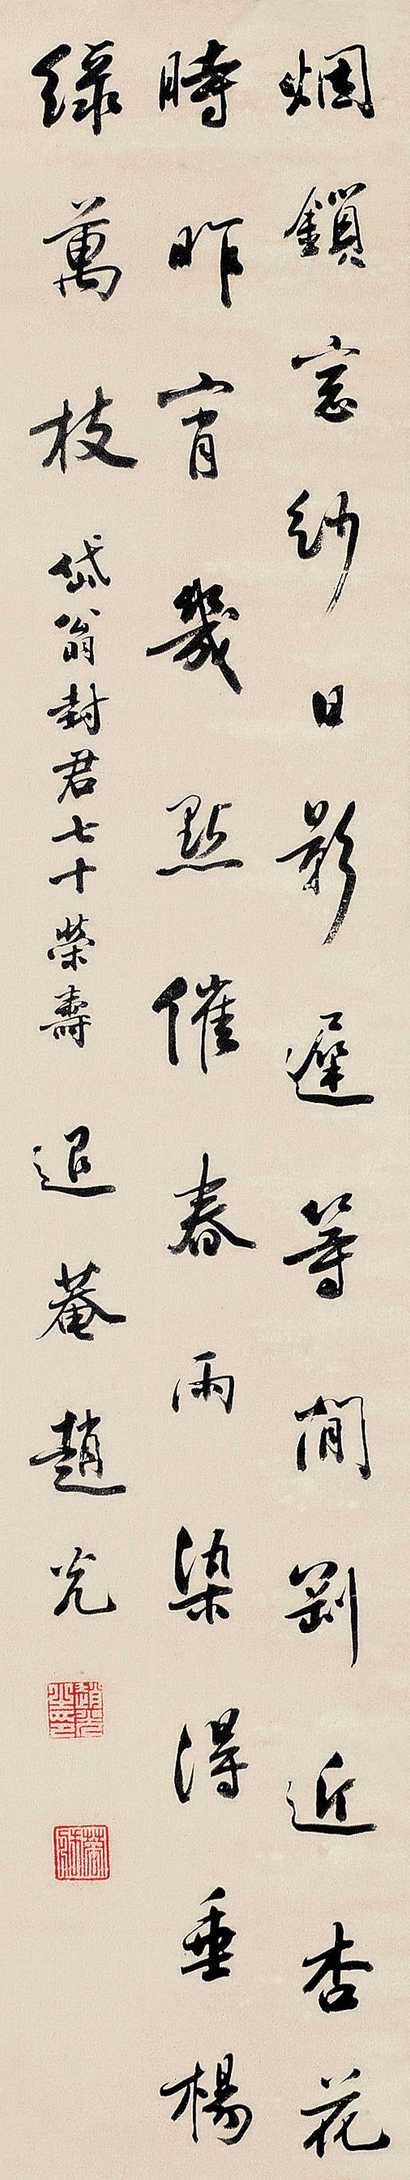 烟鎖窓紗日影遲等閒剛近杏花
時昨宵幾點催春雨染得垂楊
綠萬枝
岱翁封君七十榮壽
退菴趙光
趙光之印